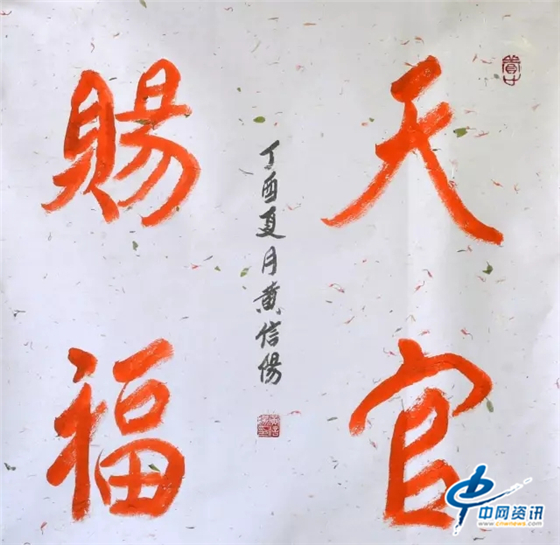 天官
賜福
丁酉夏月黄信陽
中网资讯
www.chenews.com